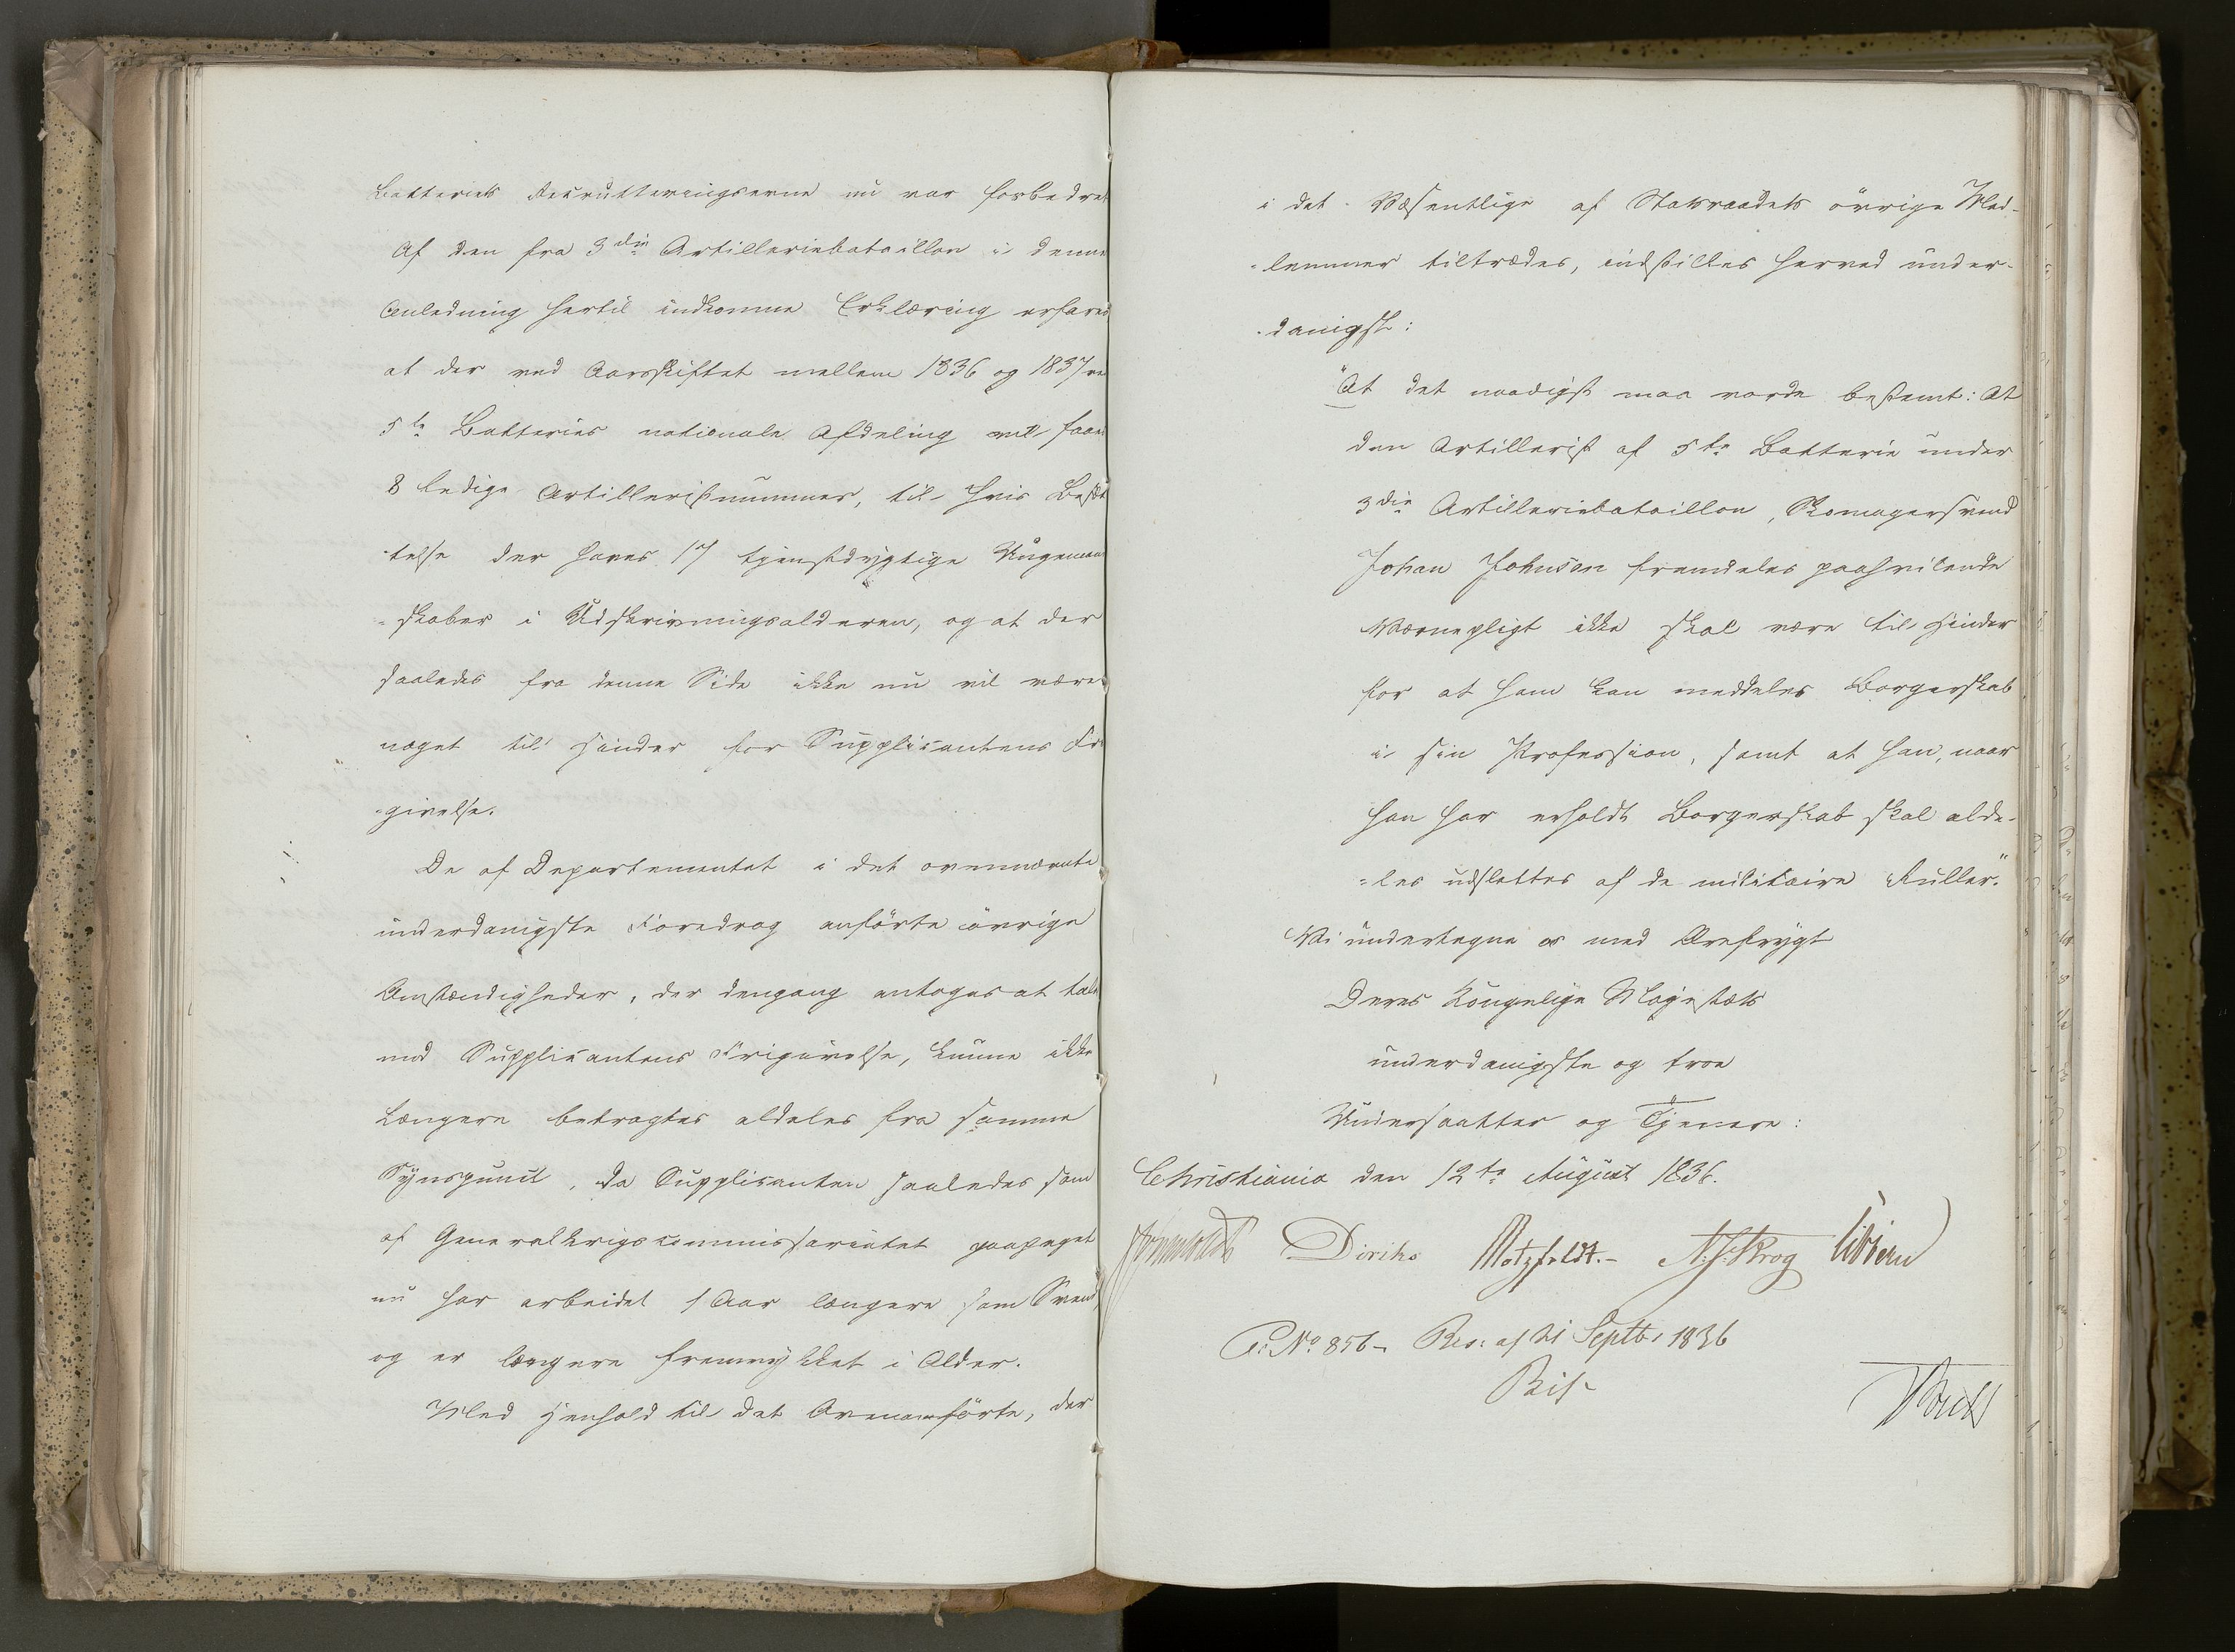 Batteriets Rekrutteringsevne nu var forbedret
Af den fra 3die Artilleriebataillon i denne
Anledning hertil indkomne Erklæring erfares
at der ved Aarsskiftet mellem 1836 og 1837 ved
5te Batteries nationale Afdeling vil faaes
8 ledige Artilleristnummer, til hvis Besæt
-telse der haves 17 tjenstdygtige Ungemand
-skaber i Udskrivningsalderen, og at der
saaledes fra denne Side ikke nu vil være
noget til Hinder for Supplicantens Fri
-givelse.
De af Departementet i det ovennævnte
underdanigste Foredrag anförte övrige
Omstændigheder, der dengang antoges at tale
mod Supplicantens Frigivelse, kunne ikke
længere betragtes aldeles fra samme
Synspunct, da Supplicanten saaledes som
af Generalkrigscommissariatet paapeget
nu har arbeidet 1 Aar længere som Svend,
og er længere fremrykket i Alder.
Med Henhold til det Ovenanförte, der
i det Væsentlige af Statsraadets övrige Med-
-lemmer tiltrædes, indstilles herved under-
-danigst:
"At det naadigst maa vorde bestemt: At
den Artillerist af 5te Batterie under
3die Artilleriebataillon, Skomagersvend
Johan Johnsen fremdeles paahvilende
Værnepligt ikke skal være til Hinder
for at ham kan meddeles Borgerskab
i sin Profession, samt at han, naar
han har erholdt Borgerskab skal alde-
=les udslettes af de militaire Ruller."
Vi undertegne os med Ærefrygt
Deres Kongelige Majestæts
underdanigste og troe
Undersaatter og Tjenere:
Christiania den 12te August 1836.
Diriks Motzfeldt.- N. J. Krog
P: No 856- Res: af 21 Septbr 1836